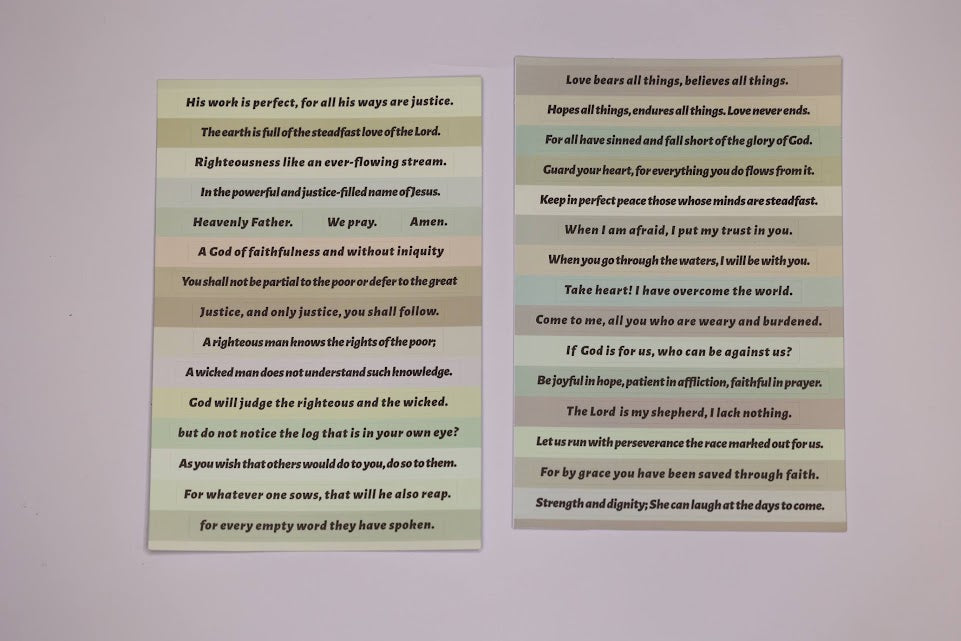 His work is perfect, for all his ways are justice.
The earth is full of the steadfast love of the Lord.
Righteousness like an ever-flowing stream.
In the powerful and justice-filled name of Jesus.
Heavenly Father. We pray. Amen.
A God of faithfulness and without iniquity
You shall not be partial to the poor or defer to the great
Justice, and only justice, you shall follow.
A righteous man knows the rights of the poor;
A wicked man does not understand such knowledge.
God will judge the righteous and the wicked.
but do not notice the log that is in your own eye?
As you wish that others would do to you, do so to them.
For whatever one sows, that will he also reap.
for every empty word they have spoken.
Love bears all things, believes all things.
Hopes all things, endures all things. Love never ends.
For all have sinned and fall short of the glory of God.
Guard your heart, for everything you do flows from it.
Keep in perfect peace those whose minds are steadfast.
When I am afraid, I put my trust in you.
When you go through the waters, I will be with you.
Take heart! I have overcome the world.
Come to me, all you who are weary and burdened.
If God is for us, who can be against us?
Be joyful in hope, patient in affliction, faithful in prayer.
The Lord is my shepherd, I lack nothing.
Let us run with perseverance the race marked out for us.
For by grace you have been saved through faith.
Strength and dignity; She can laugh at the days to come.